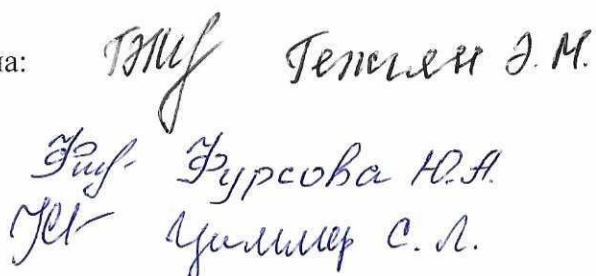 на: Генжлян Э. М.
Фурсова Ю.А.
Циммер С. Л.